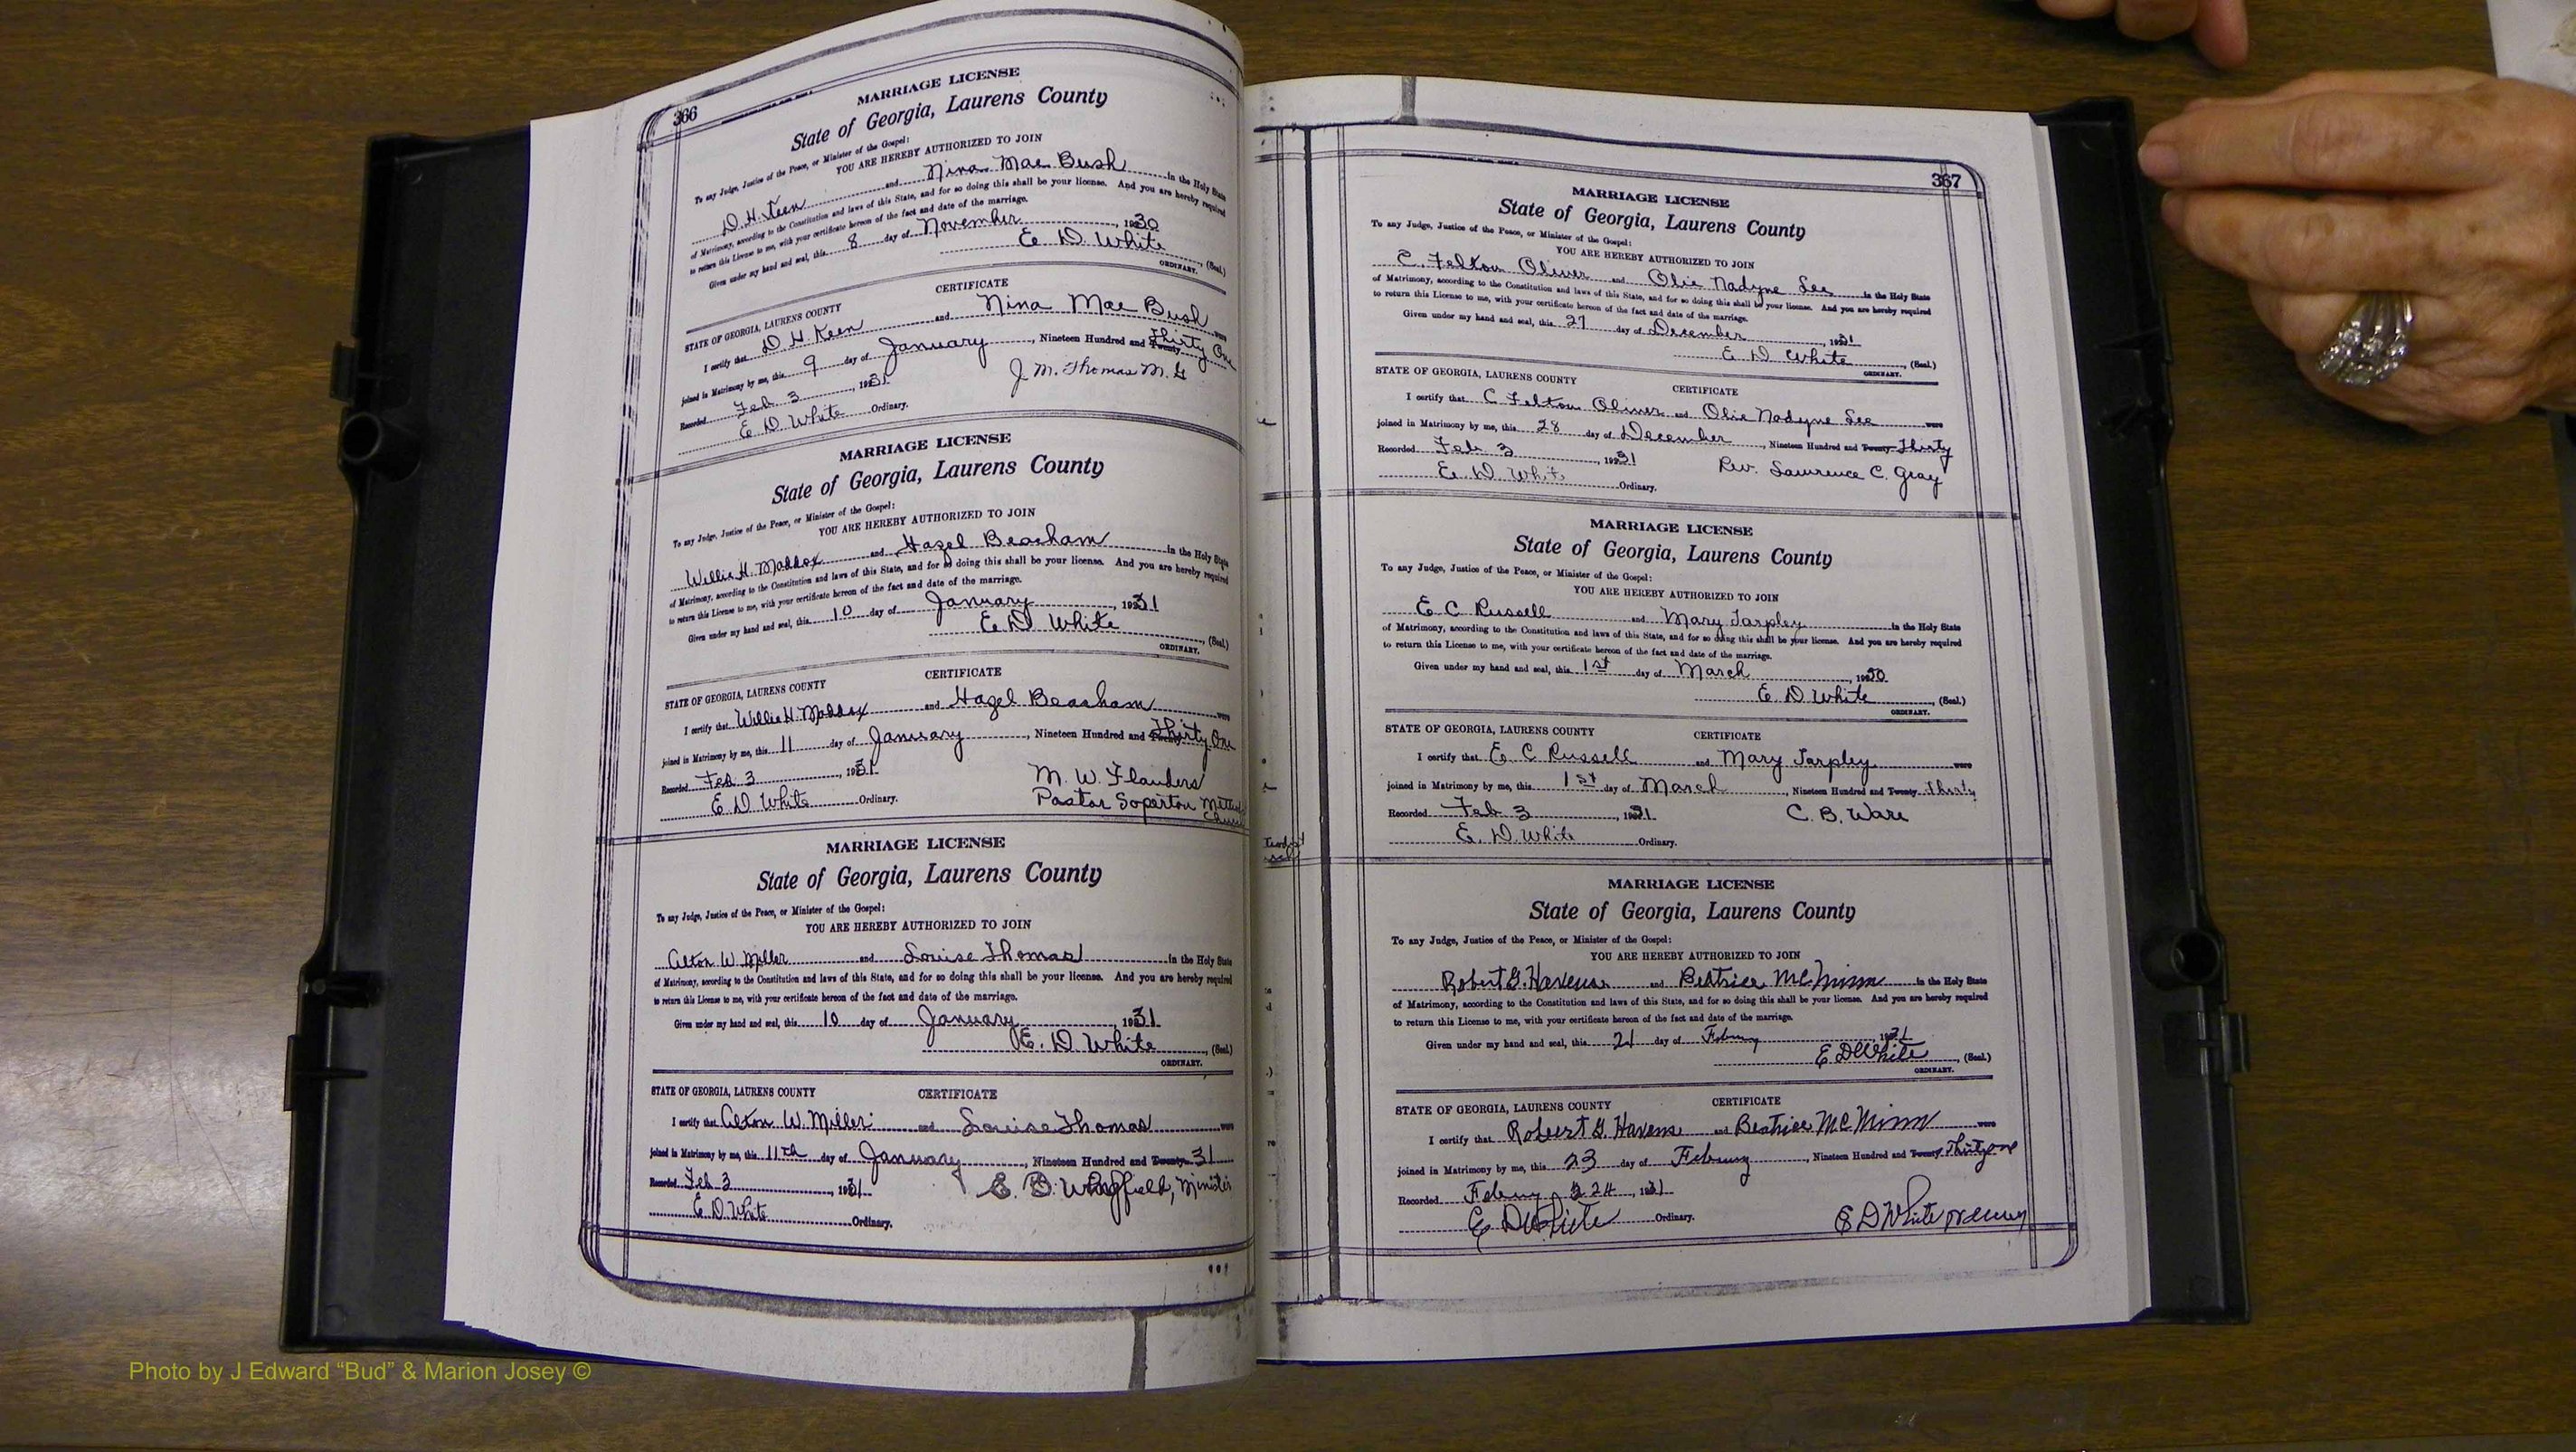 366
MARRIAGE LICENSE
State of Georgia, Laurens County
To any Judge, Justice of the Peace, or Minister of the Gospel:
YOU ARE HEREBY AUTHORIZED TO JOIN
D. H. Keen and Nina Mae Bush in the Holy State
of Matrimony, according to the Constitution and laws of this State, and for so doing this shall be your license. And you are hereby required
to return this License to me, with your certificate hereon of the fact and date of the marriage.
Given under my hand and seal, this 8 day of November, 1930
E. D. White, (Seal)
ORDINARY.
CERTIFICATE
STATE OF GEORGIA, LAURENS COUNTY
I certify that D. H. Keen and Nina Mae Bush were
joined in Matrimony by me, this 9 day of January, Nineteen Hundred and Twenty Thirty One
Recorded Feb 3, 1931 J. M. Thomas M. G
E. D. White Ordinary.
MARRIAGE LICENSE
State of Georgia, Laurens County
To any Judge, Justice of the Peace, or Minister of the Gospel:
YOU ARE HEREBY AUTHORIZED TO JOIN
Willie H. Maddox and Hazel Beacham in the Holy State
of Matrimony, according to the Constitution and laws of this State, and for so doing this shall be your license. And you are hereby required
to return this License to me, with your certificate hereon of the fact and date of the marriage.
Given under my hand and seal, this 10 day of January, 1931
E. D. White, (Seal)
ORDINARY.
CERTIFICATE
STATE OF GEORGIA, LAURENS COUNTY
I certify that Willie H. Maddox and Hazel Beacham were
joined in Matrimony by me, this 11 day of January, Nineteen Hundred and Twenty Thirty One
Recorded Feb 3, 1931 M. W. Flanders
E. D. White Ordinary. Pastor Soperton Methodist
Church
MARRIAGE LICENSE
State of Georgia, Laurens County
To any Judge, Justice of the Peace, or Minister of the Gospel:
YOU ARE HEREBY AUTHORIZED TO JOIN
Alton W. Miller and Louise Thomas in the Holy State
of Matrimony, according to the Constitution and laws of this State, and for so doing this shall be your license. And you are hereby required
to return this License to me, with your certificate hereon of the fact and date of the marriage.
Given under my hand and seal, this 10 day of January, 1931
E. D. White, (Seal)
ORDINARY.
STATE OF GEORGIA, LAURENS COUNTY CERTIFICATE
I certify that Alton W. Miller and Louise Thomas were
joined in Matrimony by me, this 11th day of January, Nineteen Hundred and Twenty 31
Recorded Feb 3, 1931 E. D. Wingfield, Minister
E. D. White Ordinary.
367
MARRIAGE LICENSE
State of Georgia, Laurens County
To any Judge, Justice of the Peace, or Minister of the Gospel:
YOU ARE HEREBY AUTHORIZED TO JOIN
C. Felton Oliver and Olie Nadyne Lee in the Holy State
of Matrimony, according to the Constitution and laws of this State, and for so doing this shall be your license. And you are hereby required
to return this License to me, with your certificate hereon of the fact and date of the marriage.
Given under my hand and seal, this 27 day of December, 1931
E. D. White, (Seal)
ORDINARY.
STATE OF GEORGIA, LAURENS COUNTY CERTIFICATE
I certify that C Felton Oliver and Olie Nadyne Lee were
joined in Matrimony by me, this 28 day of December, Nineteen Hundred and Twenty Thirty
Recorded Feb 3, 1931 Rev. Lawrence C. Gray
E. D. White Ordinary.
MARRIAGE LICENSE
State of Georgia, Laurens County
To any Judge, Justice of the Peace, or Minister of the Gospel:
YOU ARE HEREBY AUTHORIZED TO JOIN
E C Russell and Mary Tarpley in the Holy State
of Matrimony, according to the Constitution and laws of this State, and for so doing this shall be your license. And you are hereby required
to return this License to me, with your certificate hereon of the fact and date of the marriage.
Given under my hand and seal, this 1st day of March, 1930
E. D. White, (Seal)
ORDINARY.
STATE OF GEORGIA, LAURENS COUNTY CERTIFICATE
I certify that E C Russell and Mary Tarpley were
joined in Matrimony by me, this 1st day of March, Nineteen Hundred and Twenty Thirty
Recorded Feb 3, 1931 C. B. Ware
E. D. White Ordinary.
MARRIAGE LICENSE
State of Georgia, Laurens County
To any Judge, Justice of the Peace, or Minister of the Gospel:
YOU ARE HEREBY AUTHORIZED TO JOIN
Robert G. Havens and Beatrice McMinn in the Holy State
of Matrimony, according to the Constitution and laws of this State, and for so doing this shall be your license. And you are hereby required
to return this License to me, with your certificate hereon of the fact and date of the marriage.
Given under my hand and seal, this 21 day of Febury, 1931
E D White, (Seal)
ORDINARY.
STATE OF GEORGIA, LAURENS COUNTY CERTIFICATE
I certify that Robert G. Havens and Beatrice McMinn were
joined in Matrimony by me, this 23 day of Febury, Nineteen Hundred and Twenty Thirty one
Recorded Febury, 1931
E D White Ordinary. E D White
Photo by J Edward “Bud” & Marion Josey ©